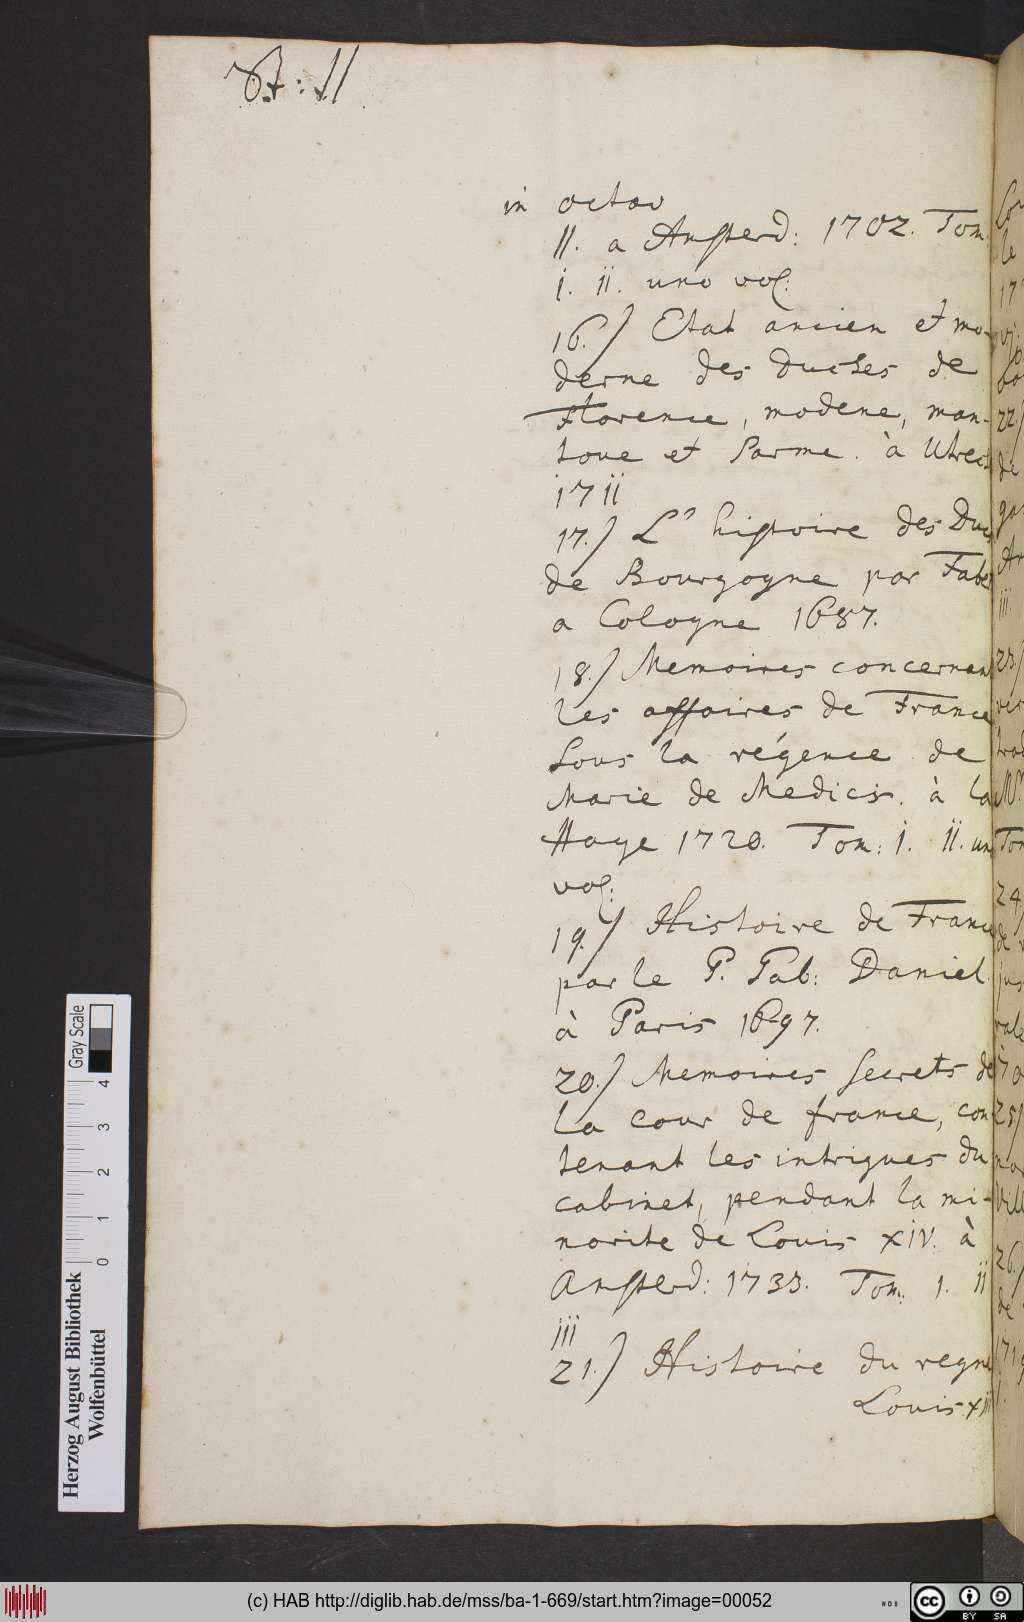 St: II
in octav
II. a Amsterd: 1702. Tom.
i. ii. uno vol:
16.) Etat ancien et mo-
derne des Duches de
Florence, modene, man-
toue et Parme. à Utrect
1711
17.) L' histoire des Ducs
de Bourgogne par Faber
a Cologne 1687.
18.) Memoires concernant
les affaires de France
sous la régence de
Marie de Medicis. à la
Haye 1720. Tom: i. ii. un
vol:
19.) Histoire de France
par le P. Gab: Daniel
à Paris 1697.
20.) Memoires secrets de
la cour de france, con-
tenant les intrigues du
cabinet, pendant la mi-
norite de Louis XIV. à
Amsterd: 1733. Tom: 1. ii
iii
21.) Histoire du regne
Louis XIII
22
23
24
26
Gray Scale
0 1 2 3 4
Herzog August Bibliothek
Wolfenbüttel
(c) HAB http://diglib.hab.de/mss/ba-1-669/start.htm?image=00052
WDB
cc BY SA